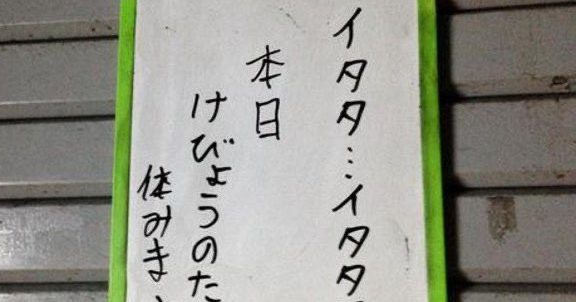 イタタ…イタタ
本日
けびょうのた
休みま